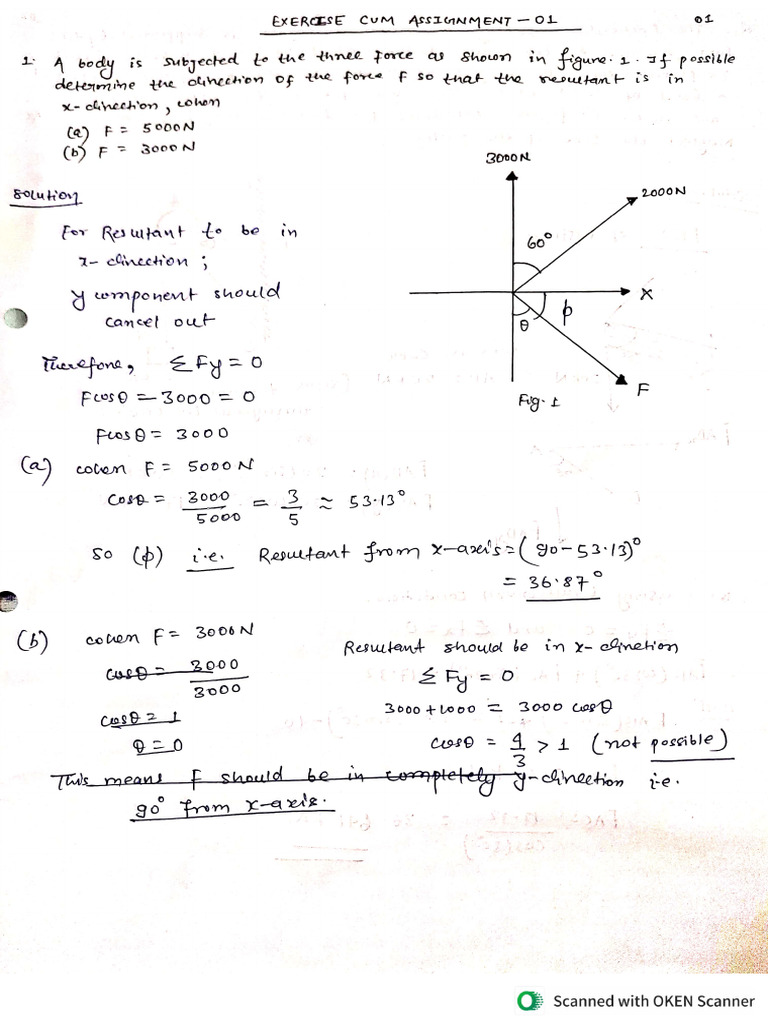 EXERCISE CUM ASSIGNMENT - 01
01
1. A body is subjected to the three force as shown in figure. 1. If possible
determine the direction of the force F so that the resultant is in
x-direction, when
(a) F = 5000N
(b) F = 3000N
3000N
2000N
60°
X
ϕ
θ
F
Fig. 1
Solution
For Resultant to be in
x-direction ;
y component should
cancel out
Therefore, ΣFy = 0
Fcosθ - 3000 = 0
Fcosθ = 3000
(a) when F = 5000N
cosθ = 3000/5000 = 3/5 ≈ 53.13°
So (ϕ) i.e. Resultant from x-axis = (90-53.13)°
= 36.87°
(b) when F = 3000N
cosθ = 3000/3000
cosθ = 1
θ = 0
Resultant should be in x-direction
ΣFy = 0
3000 + 1000 = 3000 cosθ
cosθ = 4/3 > 1 (not possible)
This means F should be in completely y-direction i.e.
90° from x-axis.
Scanned with OKEN Scanner